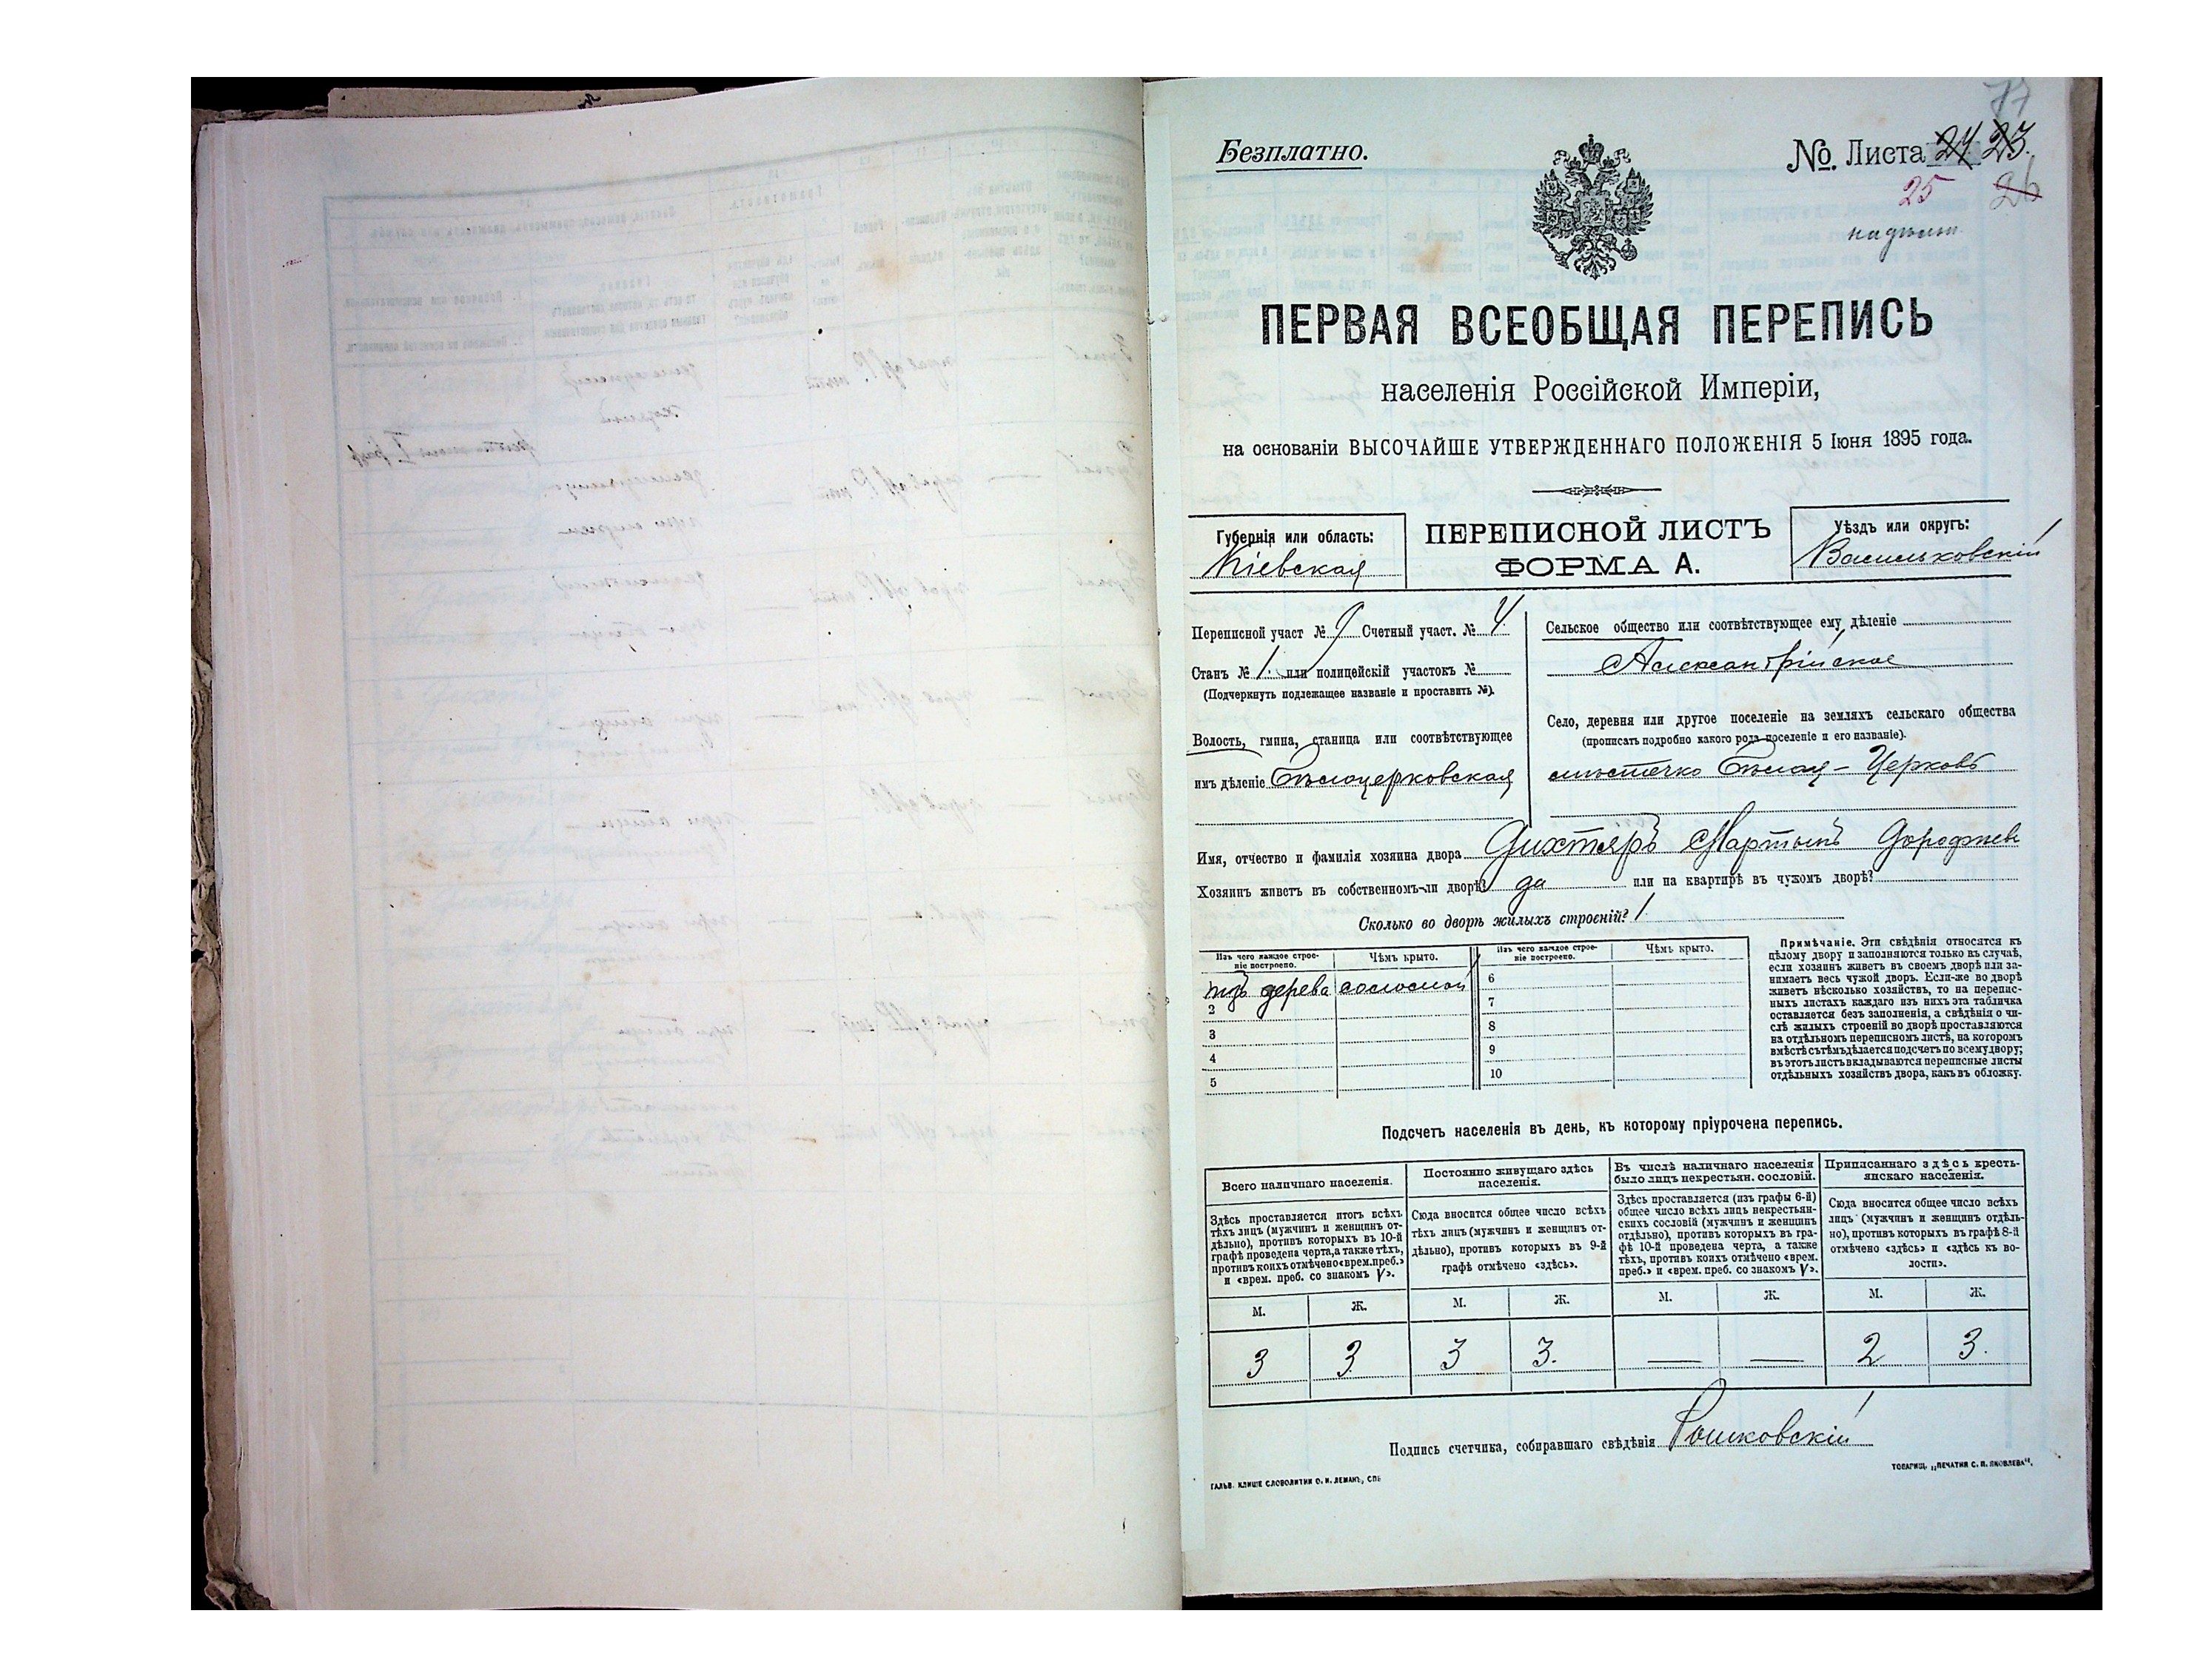 77
Безплатно.
№. Листа 24 23.
25 26
надѣлн.
ПЕРВАЯ ВСЕОБЩАЯ ПЕРЕПИСЬ
населенія Россійской Имперіи,
на основаніи ВЫСОЧАЙШЕ УТВЕРЖДЕННАГО ПОЛОЖЕНІЯ 5 Іюня 1895 года.
Губернія или область:
Кіевская
ПЕРЕПИСНОЙ ЛИСТЪ
ФОРМА А.
Уѣздъ или округъ:
Васильковскій
Переписной участ № 9 Счетный участ. № 4.
Станъ № 1. или полицейскій участокъ №
(Подчеркнуть подлежащее названіе и проставить №).
Волость, гмина, станица или соотвѣтствующее
имъ дѣленіе Бѣлоцерковская
Сельское общество или соотвѣтствующее ему дѣленіе
Александрійское
Село, деревня или другое поселеніе на земляхъ сельскаго общества
(прописать подробно какого рода поселеніе и его названіе).
мѣстечко Бѣлая-Церковь
Имя, отчество и фамилія хозяина двора Дихтяръ Мартынъ Дорофѣев
Хозяинъ живетъ въ собственномъ-ли дворѣ? да или на квартирѣ въ чужомъ дворѣ?
Сколько во дворѣ жилыхъ строеній? 1.
Изъ чего каждое строе-
ніе построено.
Чѣмъ крыто.
Изъ чего каждое строе-
ніе построено.
Чѣмъ крыто.
изъ дерева соломой
2
3
4
5
6
7
8
9
10
Примѣчаніе. Эти свѣдѣнія относятся къ
цѣлому двору и заполняются только въ случаѣ,
если хозяинъ живетъ въ своемъ дворѣ или за-
нимаетъ весь чужой дворъ. Если-же во дворѣ
живетъ нѣсколько хозяйствъ, то на перепис-
ныхъ листахъ каждаго изъ нихъ эта табличка
оставляется безъ заполненія, а свѣдѣнія о чи-
слѣ жилыхъ строеній во дворѣ проставляются
на отдѣльномъ переписномъ листѣ, на которомъ
вмѣстѣ съ тѣмъ дѣлается подсчетъ по всему двору;
въ этотъ листъ вкладываются переписные листы
отдѣльныхъ хозяйствъ двора, какъ въ обложку.
Подсчетъ населенія въ день, къ которому пріурочена перепись.
Всего наличнаго населенія.
Здѣсь проставляется итогъ всѣхъ
тѣхъ лицъ (мужчинъ и женщинъ от-
дѣльно), противъ которыхъ въ 10-й
графѣ проведена черта, а также тѣхъ,
противъ коихъ отмѣчено «врем. преб.»
и «врем. преб. со знакомъ V».
Постоянно живущаго здѣсь
населенія.
Сюда вносится общее число всѣхъ
тѣхъ лицъ (мужчинъ и женщинъ от-
дѣльно), противъ которыхъ въ 9-й
графѣ отмѣчено «здѣсь».
Въ числѣ наличнаго населенія
было лицъ некрестьян. сословій.
Здѣсь проставляется (изъ графы 6-й)
общее число всѣхъ лицъ некрестьян-
скихъ сословій (мужчинъ и женщинъ
отдѣльно), противъ которыхъ въ гра-
фѣ 10-й проведена черта, а также
тѣхъ, противъ коихъ отмѣчено «врем.
преб.» и «врем. преб. со знакомъ V».
Приписаннаго здѣсь кресть-
янскаго населенія.
Сюда вносится общее число всѣхъ
лицъ (мужчинъ и женщинъ отдѣль-
но), противъ которыхъ въ графѣ 8-й
отмѣчено «здѣсь» и «здѣсь къ во-
лости».
М. Ж. М. Ж. М. Ж. М. Ж.
3 3 3 3. — — 2 3.
Подпись счетчика, собиравшаго свѣдѣнія Рошковскій
ГАЛЬВ. КЛИШЕ СЛОВОЛИТНИ О. И. ЛЕМАНЪ, СПБ
ТОВАРИЩ. „ПЕЧАТНЯ С. П. ЯКОВЛЕВА“.